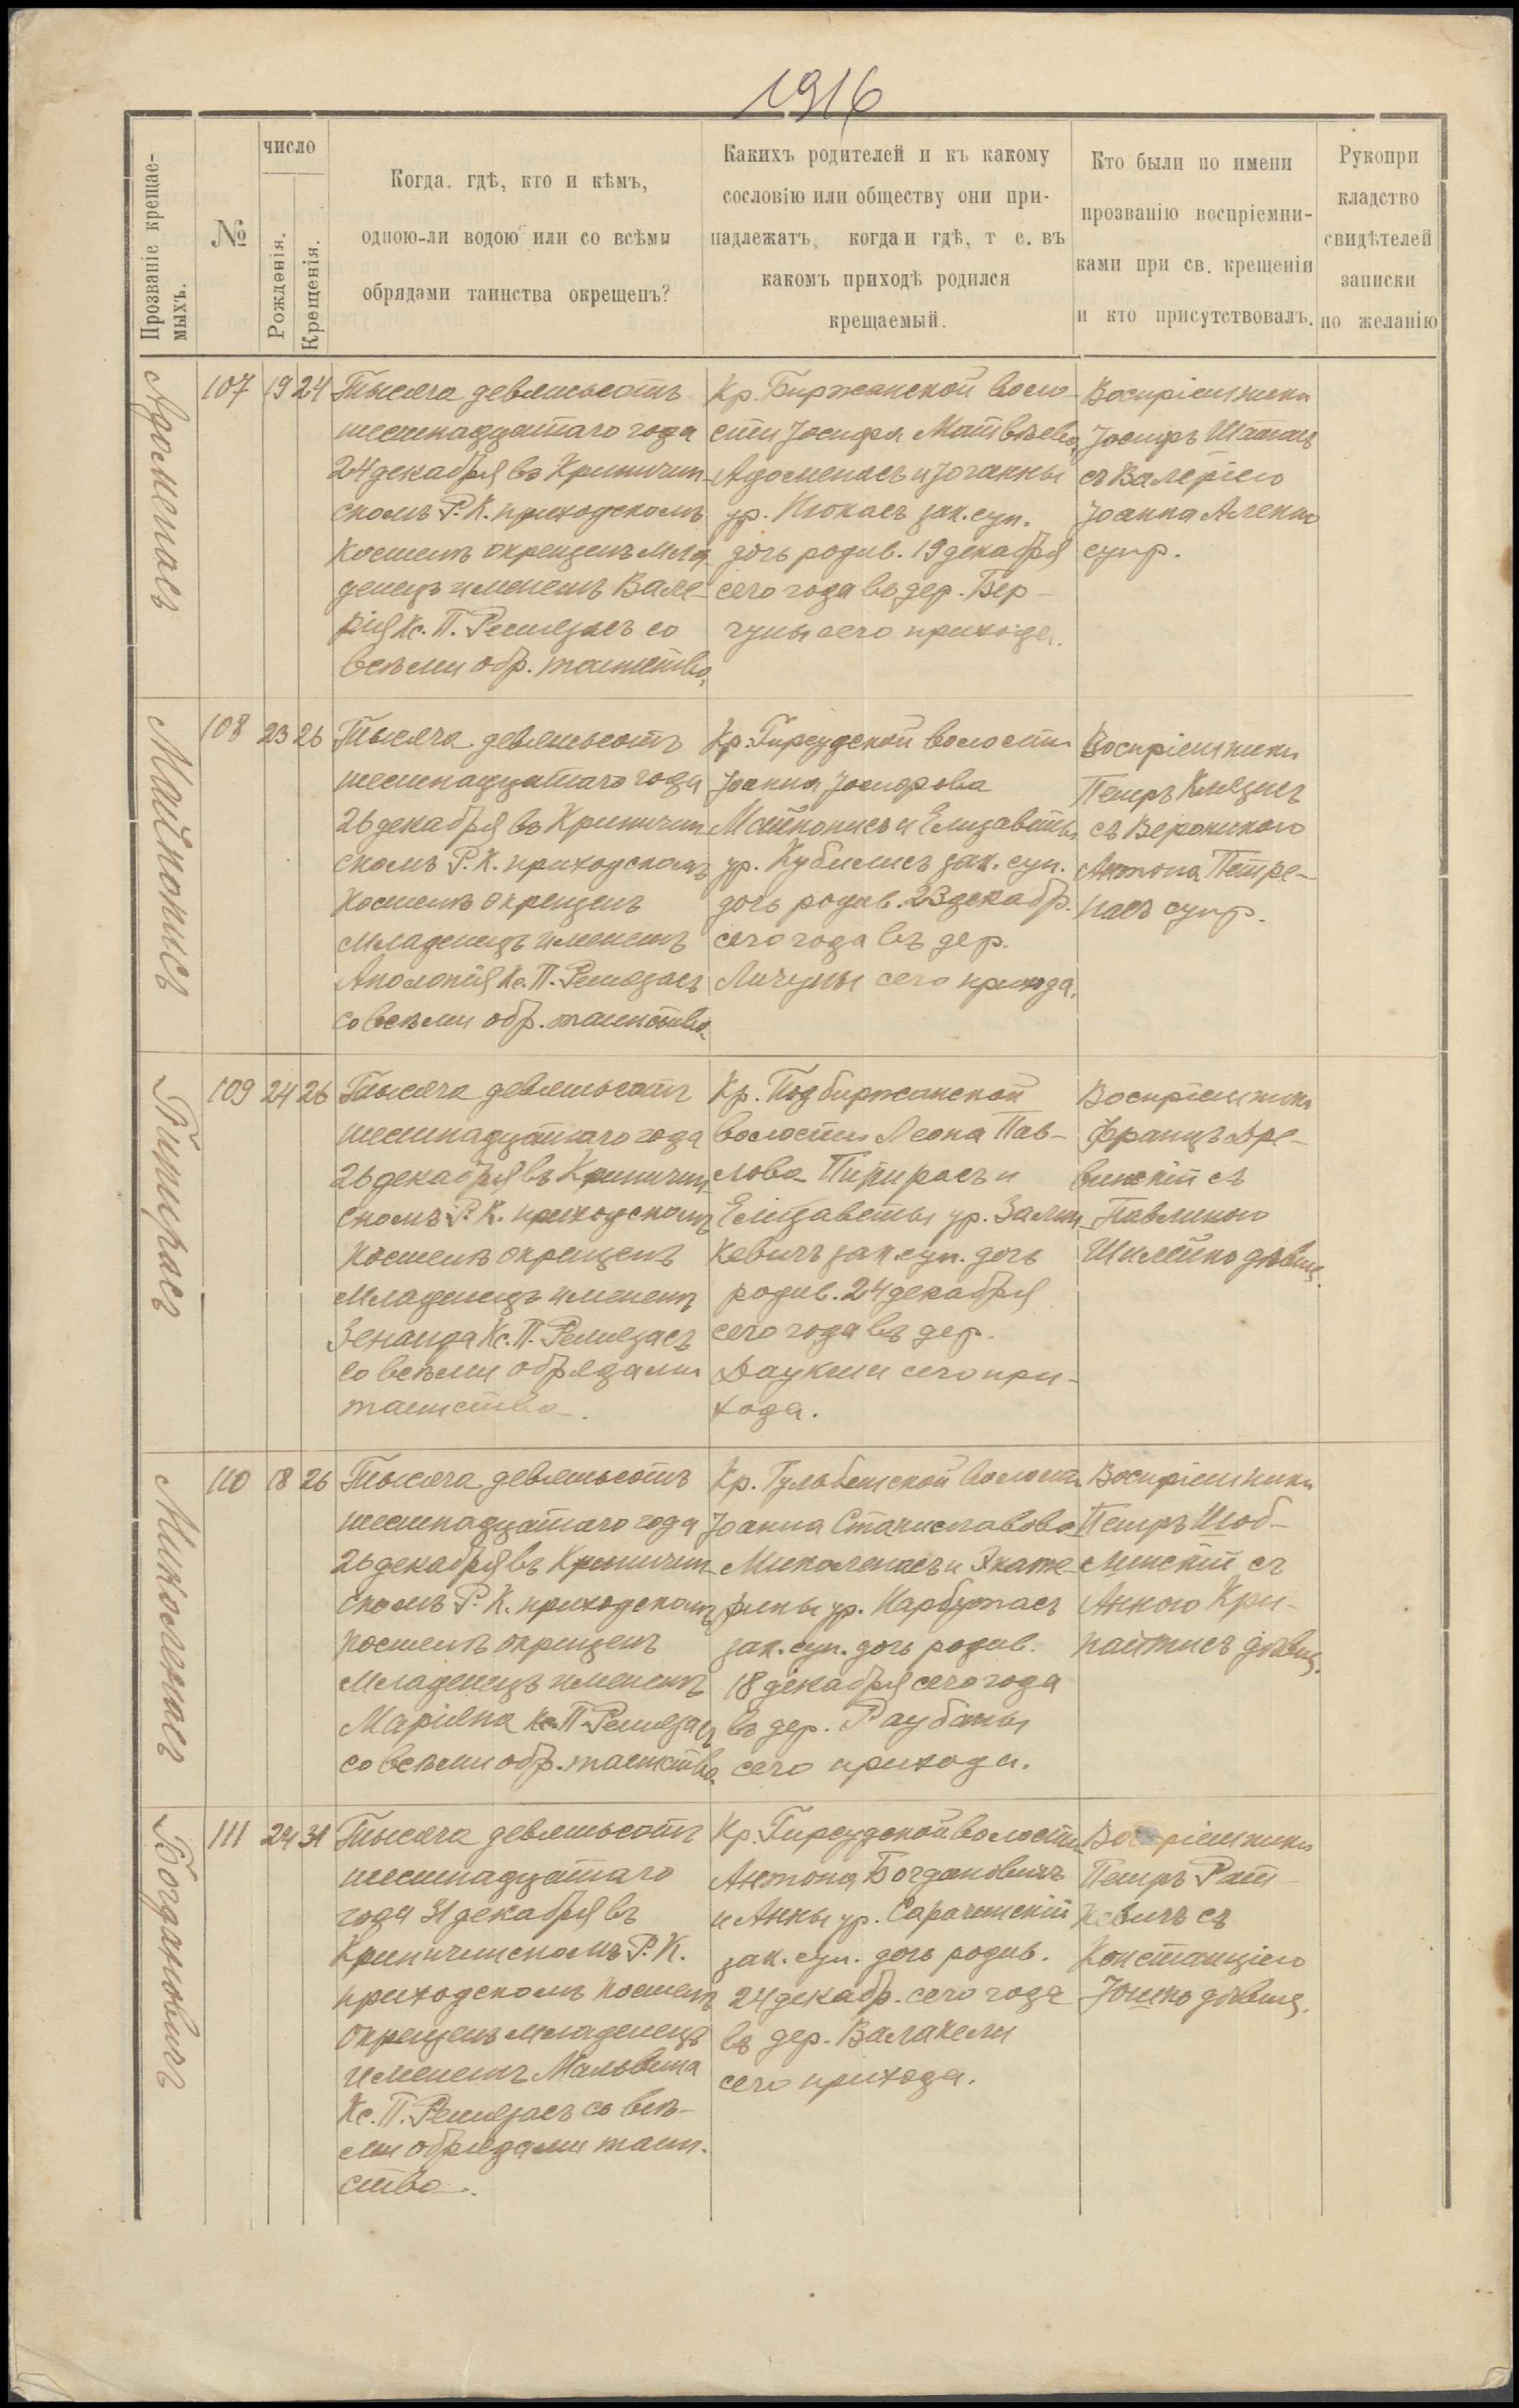 1916
Прозваніе крещае-
мыхъ.
№
число
Рожденія.
Крещенія.
Когда, гдѣ, кто и кѣмъ,
одною-ли водою или со всѣми
обрядами таинства окрещенъ?
Какихъ родителей и къ какому
сословію или обществу они при-
надлежатъ, когда и гдѣ, т е. въ
какомъ приходѣ родился
крещаемый.
Кто были по имени
прозванію воспріемни-
ками при св. крещеніи
и кто присутствовалъ.
Рукопри
кладство
свидѣтелей
записки
по желанію
Адоменасъ
107
19
24
Тысяча девятьсотъ
шестнадцатаго года
24 декабря въ Криничин-
скомъ Р. К. приходскомъ
костелѣ окрещенъ мла
денецъ именемъ Вале-
рія Кс. П. Ремезасъ со
всѣми обр. таинства.
Кр. Биржанской воло-
сти Іосифа Матвѣева
Адоменасъ и Іоганны
ур. Клокасъ зак. суп.
дочь родив. 19 декабря
сего года въ дер. Бер-
чуны сего прихода.
Воспріемники
Іосифъ
съ Валеріею
Іоанна Аленко
супр.
Матконисъ
108
23
26
Тысяча девятьсотъ
шестнадцатаго года
26 декабря въ Криничин
скомъ Р. К. приходскомъ
костелѣ окрещенъ
младенецъ именемъ
Аполонія Кс. П. Ремезасъ
со всѣми обр. таинства.
Кр. Гирсудской волости
Іоанна Іосифова
Матконисъ и Елизаветы
ур. Кубилисъ зак. суп.
дочь родив. 23 декабр.
сего года въ дер.
Личуны сего прихода.
Воспріемники
Петръ
съ Вероникою
Антона Петре-
насъ супр.
Пипирасъ
109
24
26
Тысяча девятьсотъ
шестнадцатаго года
26 декабря въ Криничин
скомъ Р. К. приходскомъ
костелѣ окрещенъ
младенецъ именемъ
Зенаида Кс. П. Ремезасъ
со всѣми обрядами
таинства.
Кр. Подбиржанской
волости Леона Пав-
лова Пипирасъ и
Елизаветы ур. Залин
кевичъ зак. суп. дочь
родив. 24 декабря
сего года въ дер.
Даукши сего при-
хода.
Воспріемники
Францъ Дре-
винскій съ
Павлиною
Шилейко дѣвиц.
Миколенасъ
110
18
26
Тысяча девятьсотъ
шестнадцатаго года
26 декабря въ Криничин
скомъ Р. К. приходскомъ
костелѣ окрещенъ
младенецъ именемъ
Маріяна Кс. П. Ремезасъ
со всѣми обр. таинства.
Кр. Гульбенской волости
Іоанна Станиславова
Миколенасъ и Экате-
рины ур. Нарбутасъ
зак. суп. дочь родив.
18 декабря сего года
въ дер. Раубаны
сего прихода.
Воспріемники
Петръ Шоб-
линскій съ
Анною Кри-
пайтисъ дѣвиц.
Богдановичъ
111
24
31
Тысяча девятьсотъ
шестнадцатаго
года 31 декабря въ
Криничинскомъ Р. К.
приходскомъ костелѣ
окрещенъ младенецъ
именемъ Мальвина
Кс. П. Ремезасъ со всѣ-
ми обрядами таин-
ства.
Кр. Гирсудской волости
Антона Богдановичъ
и Анны ур. Сарачинскій
зак. суп. дочь родив.
24 декабр. сего года
въ дер. Валакели
сего прихода.
Воспріемники
Петръ Рат
кевичъ съ
Констанціею
Юшко дѣвиц.